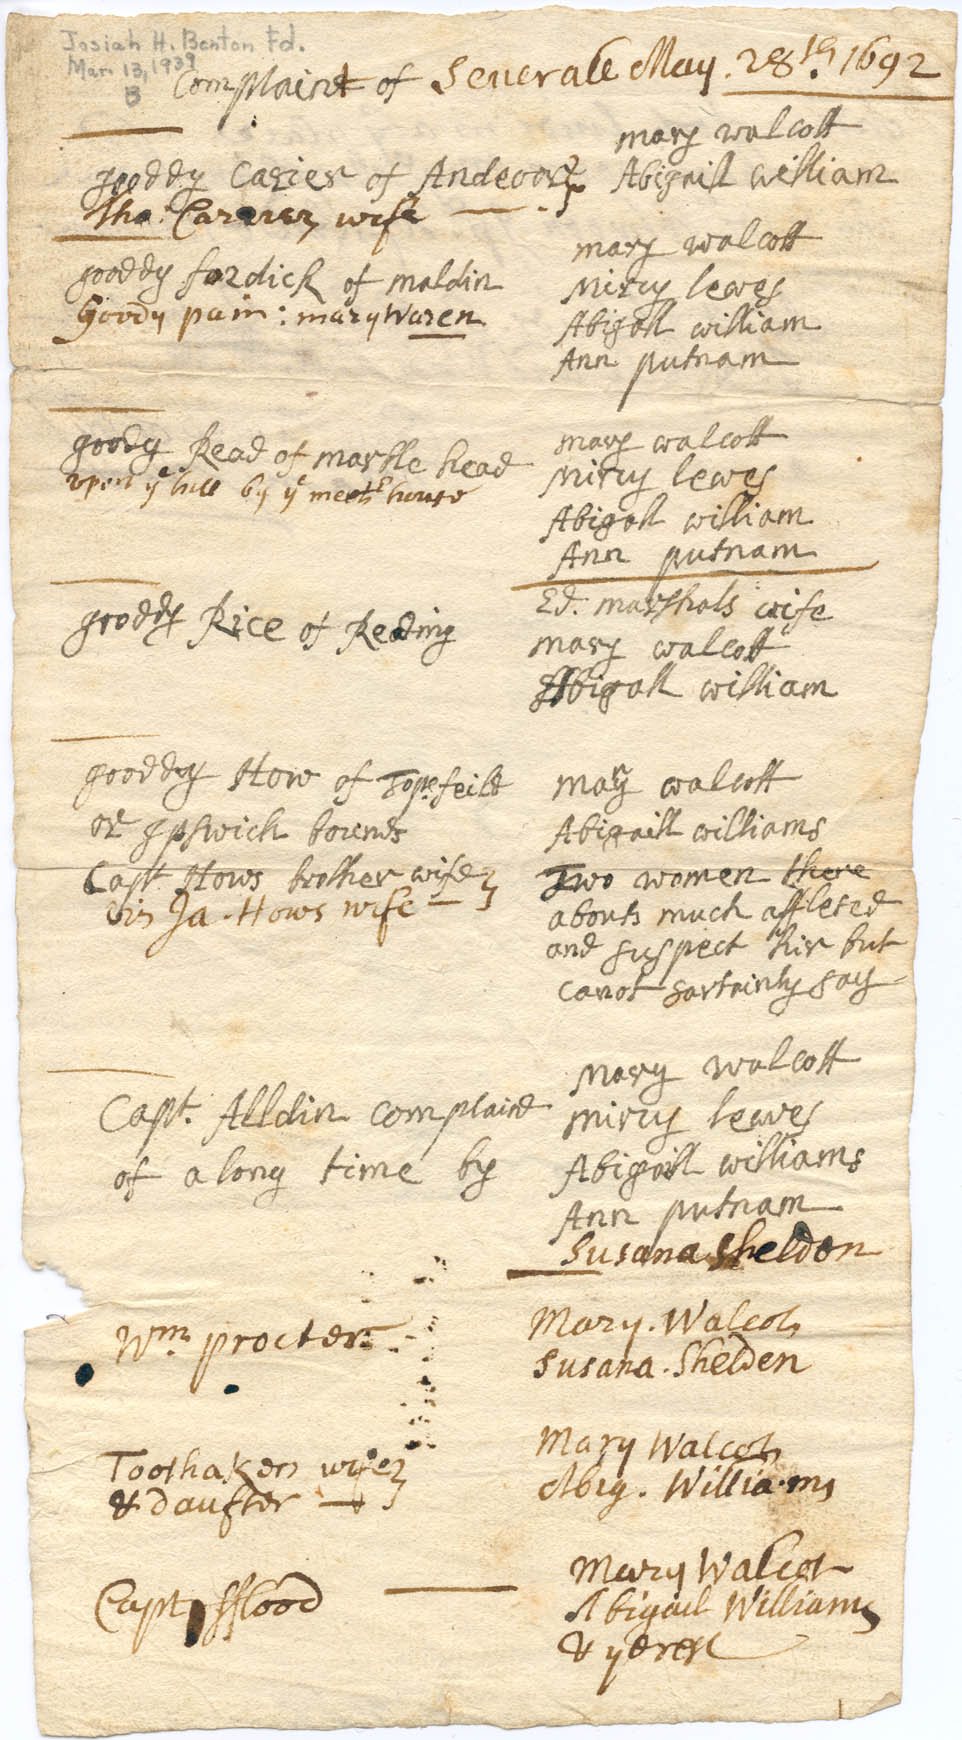 Josiah H. Benton Fd.
Mar. 13, 1939
B
Complaint of Severale May. 28th. 1692
mary walcott
gooddy Carier of Andeover
Abigaill william
Tho: Carrier wife
mary walcott
gooddy fordick of maldin
mircy lewes
Goody pain: mary Waren
Abigall william
Ann putnam
goody Read of marblehead
mary walcott
upon ye hill by ye meeth house
mircy lewes
Abigall william
Ann putnam
Ed: marshals wife
gooddy Rice of Reding
mary walcott
Abigall william
gooddy How of Topsfeild
mary walcott
or Ipswich bounds
Abigaill williams
Capt Hows brother wife
Two women there
Ja. Hows wife
abouts much afflected
and suspect hir but
canot sartainly say
mary walcott
Capt. Alldin complaind
mircy lewes
of a long time by
Abigaill williams
Ann putnam
Susana Sheldon
Wm. procter
Mary. Walcot
Susana. Shelden
Toothaker wife
Mary Walcot
& daufter
Abig. Williams
Mary Walcot
Capt fflood
Abigail Williams
& ye rest